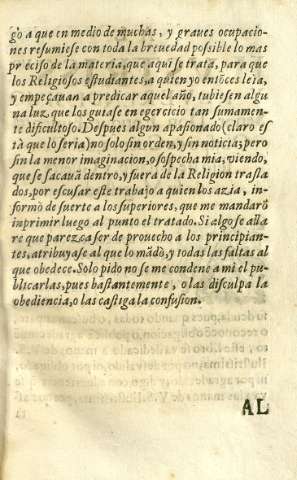 gò a que en medio de muchas, y graues ocupacio-
nes resumiese con toda la breuedad possible lo mas
preciso de la materia, que aqui se trata, para que
los Religiosos estudiantes, a quien yo entõces leia,
y empeçauan a predicar aquel año, tubiesen algu
na luz, que los guiase en egercicio tan sumamen-
te dificultoso. Despues algun apasionado (claro es
tà que lo seria) no solo sin orden, y sin noticia, pero
sin la menor imaginacion, o sospecha mia, viendo,
que se sacauã dentro, y fuera de la Religion trasla
dos, por escusar este trabajo a quien los azia, in-
formò de suerte a los superiores, que me mandarõ
inprimir luego al punto el tratado. Si algo se alla
re que parezca ser de prouecho a los principian-
tes, atribuyase al que lo mãdò, y todas las faltas al
que obedece. Solo pido no se me condene a mi el pu-
blicarlas, pues bastantemente, o las disculpa la
obediencia, o las castiga la confusion.
AL